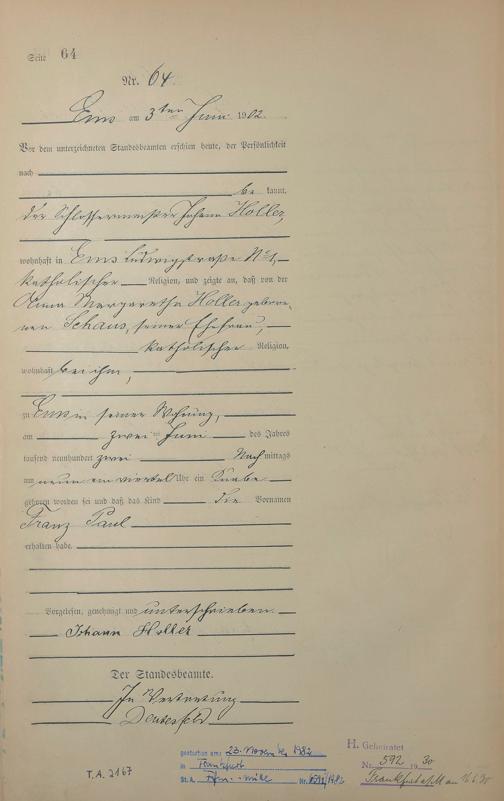 Seite 64
Nr. 64.
Ems am 3ten Juni 1902.
Vor dem unterzeichneten Standesbeamten erschien heute, der Persönlichkeit
nach
be kannt,
der Schlossermeister Johann Holler,
wohnhaft in Ems Ludwigstraße No 1,
katholischer Religion, und zeigte an, daß von der
Anna Margaretha Holler gebore-
nen Schaus, seiner Ehefrau,
katholischer Religion,
wohnhaft bei ihm,
zu Ems in seiner Wohnung,
am zwei ten Juni des Jahres
tausend neunhundert zwei Nach mittags
um neun ein viertel Uhr ein Knabe
geboren worden sei und daß das Kind die Vornamen
Franz Paul
erhalten habe.
Vorgelesen, genehmigt und unterschrieben
Johann Holler
Der Standesbeamte.
In Vertretung
gestorben am: 23. November 1982
in Frankfurt
St.A. Nr.
H. Geheiratet
Nr. 592 1930
Frankfurt a/M am
T.A. 2167